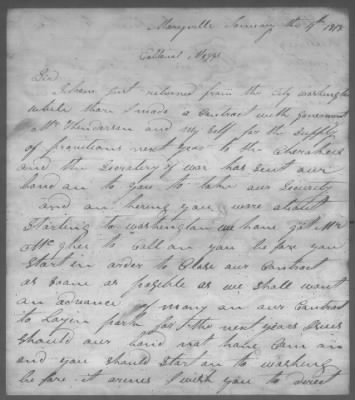 Maryville January the 4th 1818
Collonel Meggs
Sir
I have just returned from the City washington
while thare I made a Contract with government
Mr Henderson and my self for the Supply
of provitions next year to the Cherokees
and the Secretary of war has sent our
bond on to you to take our Security
and on hering you ware about
Starting to washington we have got Mr
McGhee to Call on you before you
Start in order to Close our Contract
as soon as possible as we shall want
an advance of mony on our Contract
to Lay in pork for the next years Issues
Should our bond not have Cam on
and you Should Start on to washing
before it arives I wish you to direct